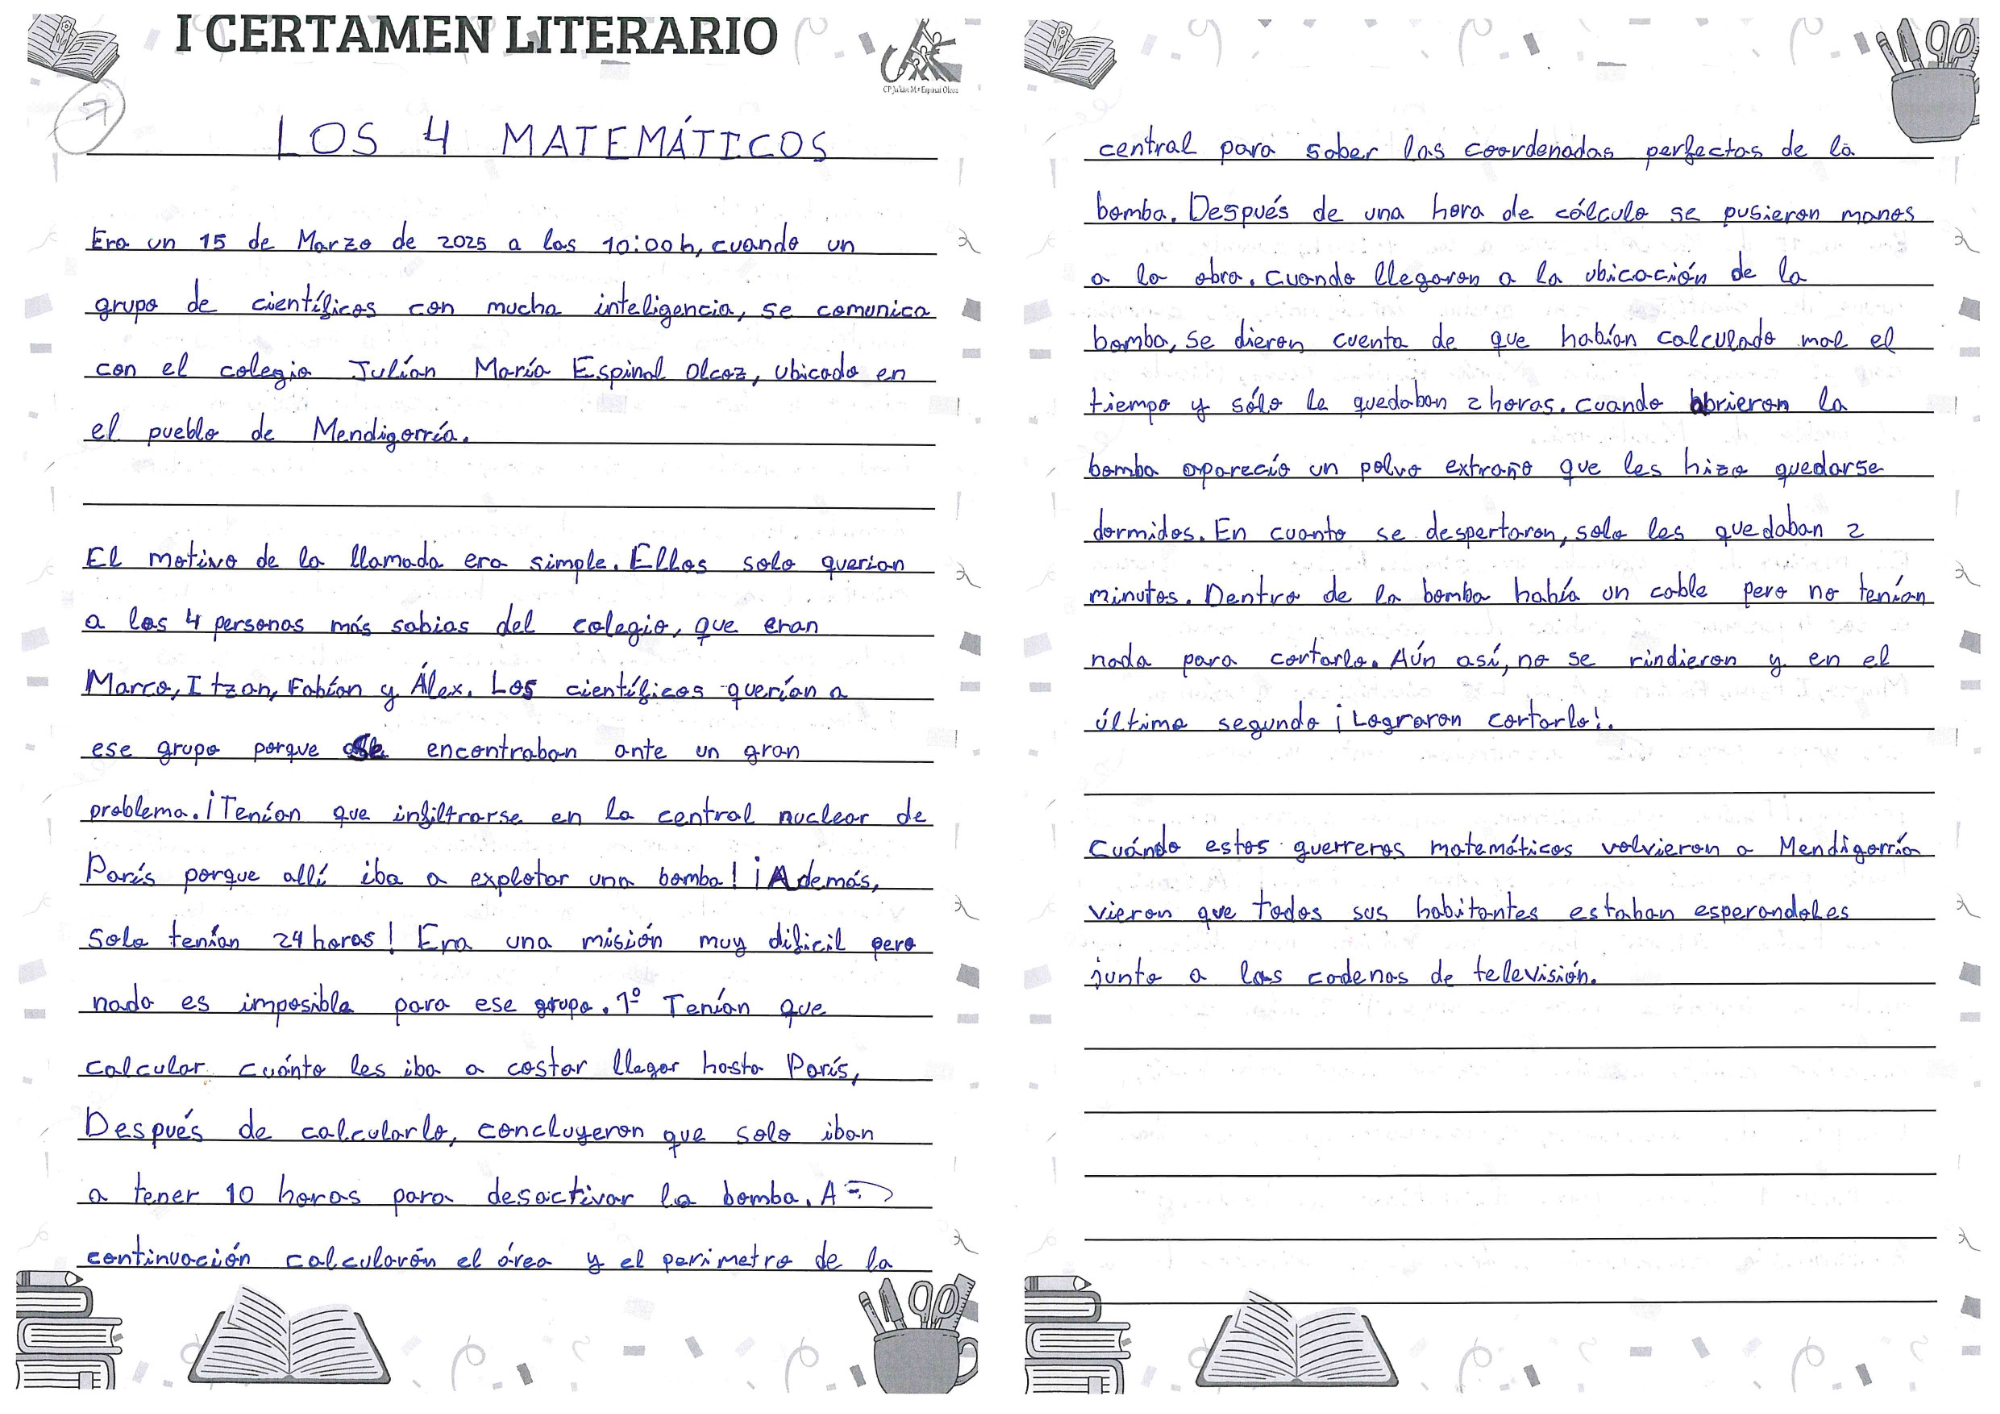 I CERTAMEN LITERARIO
CP Julián Mª Espinal Olcoz
7
LOS 4 MATEMÁTICOS
Era un 15 de Marzo de 2025 a las 10:00h, cuando un
grupo de científicos con mucha inteligencia, se comunica
con el colegio Julián María Espinal Olcoz, ubicado en
el pueblo de Mendigorría.
El motivo de la llamada era simple. Ellos solo querian
a las 4 personas más sabias del colegio, que eran
Marco, Itzan, Fabían y Álex. Los científicos querían a
ese grupo porque se encontraban ante un gran
problema. ¡Tenían que infiltrarse en la central nuclear de
París porque allí iba a explotar una bomba! ¡Además,
solo tenían 24 horas! Era una misión muy dificil pero
nada es imposible para ese grupo. 1º Tenían que
calcular cuánto les iba a costar llegar hasta París,
Después de calcularlo, concluyeron que solo iban
a tener 10 horas para desactivar la bomba. A
continuación calcularón el área y el perimetro de la
central para saber las coordenadas perfectas de la
bomba. Después de una hora de cálculo se pusieron manos
a la obra. Cuando llegaron a la ubicación de la
bomba, se dieron cuenta de que habían calculado mal el
tiempo y sólo le quedaban 2 horas. Cuando abrieron la
bomba aparecío un polvo extraño que les hizo quedarse
dormidos. En cuanto se despertaron, solo les quedaban 2
minutos. Dentro de la bomba había un cable pero no tenían
nada para cortarlo. Aún así, no se rindieron y en el
último segundo ¡Lograron cortarlo!.
Cuándo estos guerreros matemáticos volvieron a Mendigorría
vieron que todos sus habitantes estaban esperandoles
junto a las cadenas de televisión.